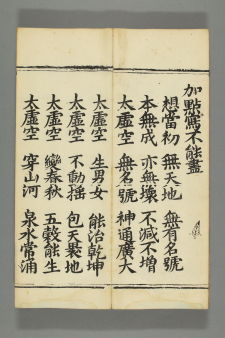 加點𮪍不能盡
想當初 無天地 無有名號
本無成 亦無壞 不減不增
太虛空 無名號 神通廣大
太虛空 生男女 能治乾坤
太虛空 不動搖 包天裹地
太虛空 變春秋 五穀能生
太虛空 穿山河 泉水常涌